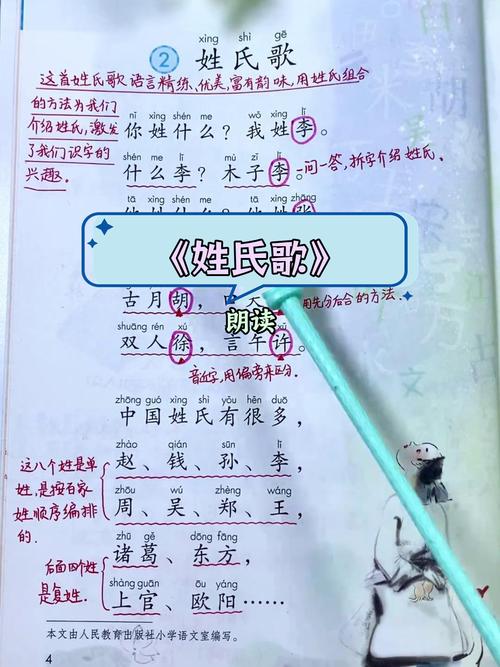 xìng shì gē
2 姓氏歌
这首姓氏歌语言精练、优美,富有韵味,用姓氏组合
的方法为我们
介绍姓氏,激发
了我们识字的
兴趣。
nǐ xìng shén me wǒ xìng lǐ
你姓什么?我姓李。
shén me lǐ mù zǐ lǐ
什么李?木子李。
一问一答,拆字介绍姓氏。
tā xìng shén me tā xìng zhāng
他姓什么?他姓张
《姓氏歌》
朗读
古月胡,口天
用先分后合的方法.
shuāng rén xú yán wǔ xǔ
双人徐,言午许。
音近字,用偏旁来区分.
zhōng guó xìng shì yǒu hěn duō
中国姓氏有很多,
zhào qián sūn lǐ
赵、钱、孙、李,
zhōu wú zhèng wáng
周、吴、郑、王,
这八个姓是单
姓,是按百家
姓顺序编排
的.
zhū gě dōng fāng
诸葛、东方,
shàng guān ōu yáng
上官、欧阳……
后面四个姓
是复姓.
本文由人民教育出版社小学语文室编写。
4